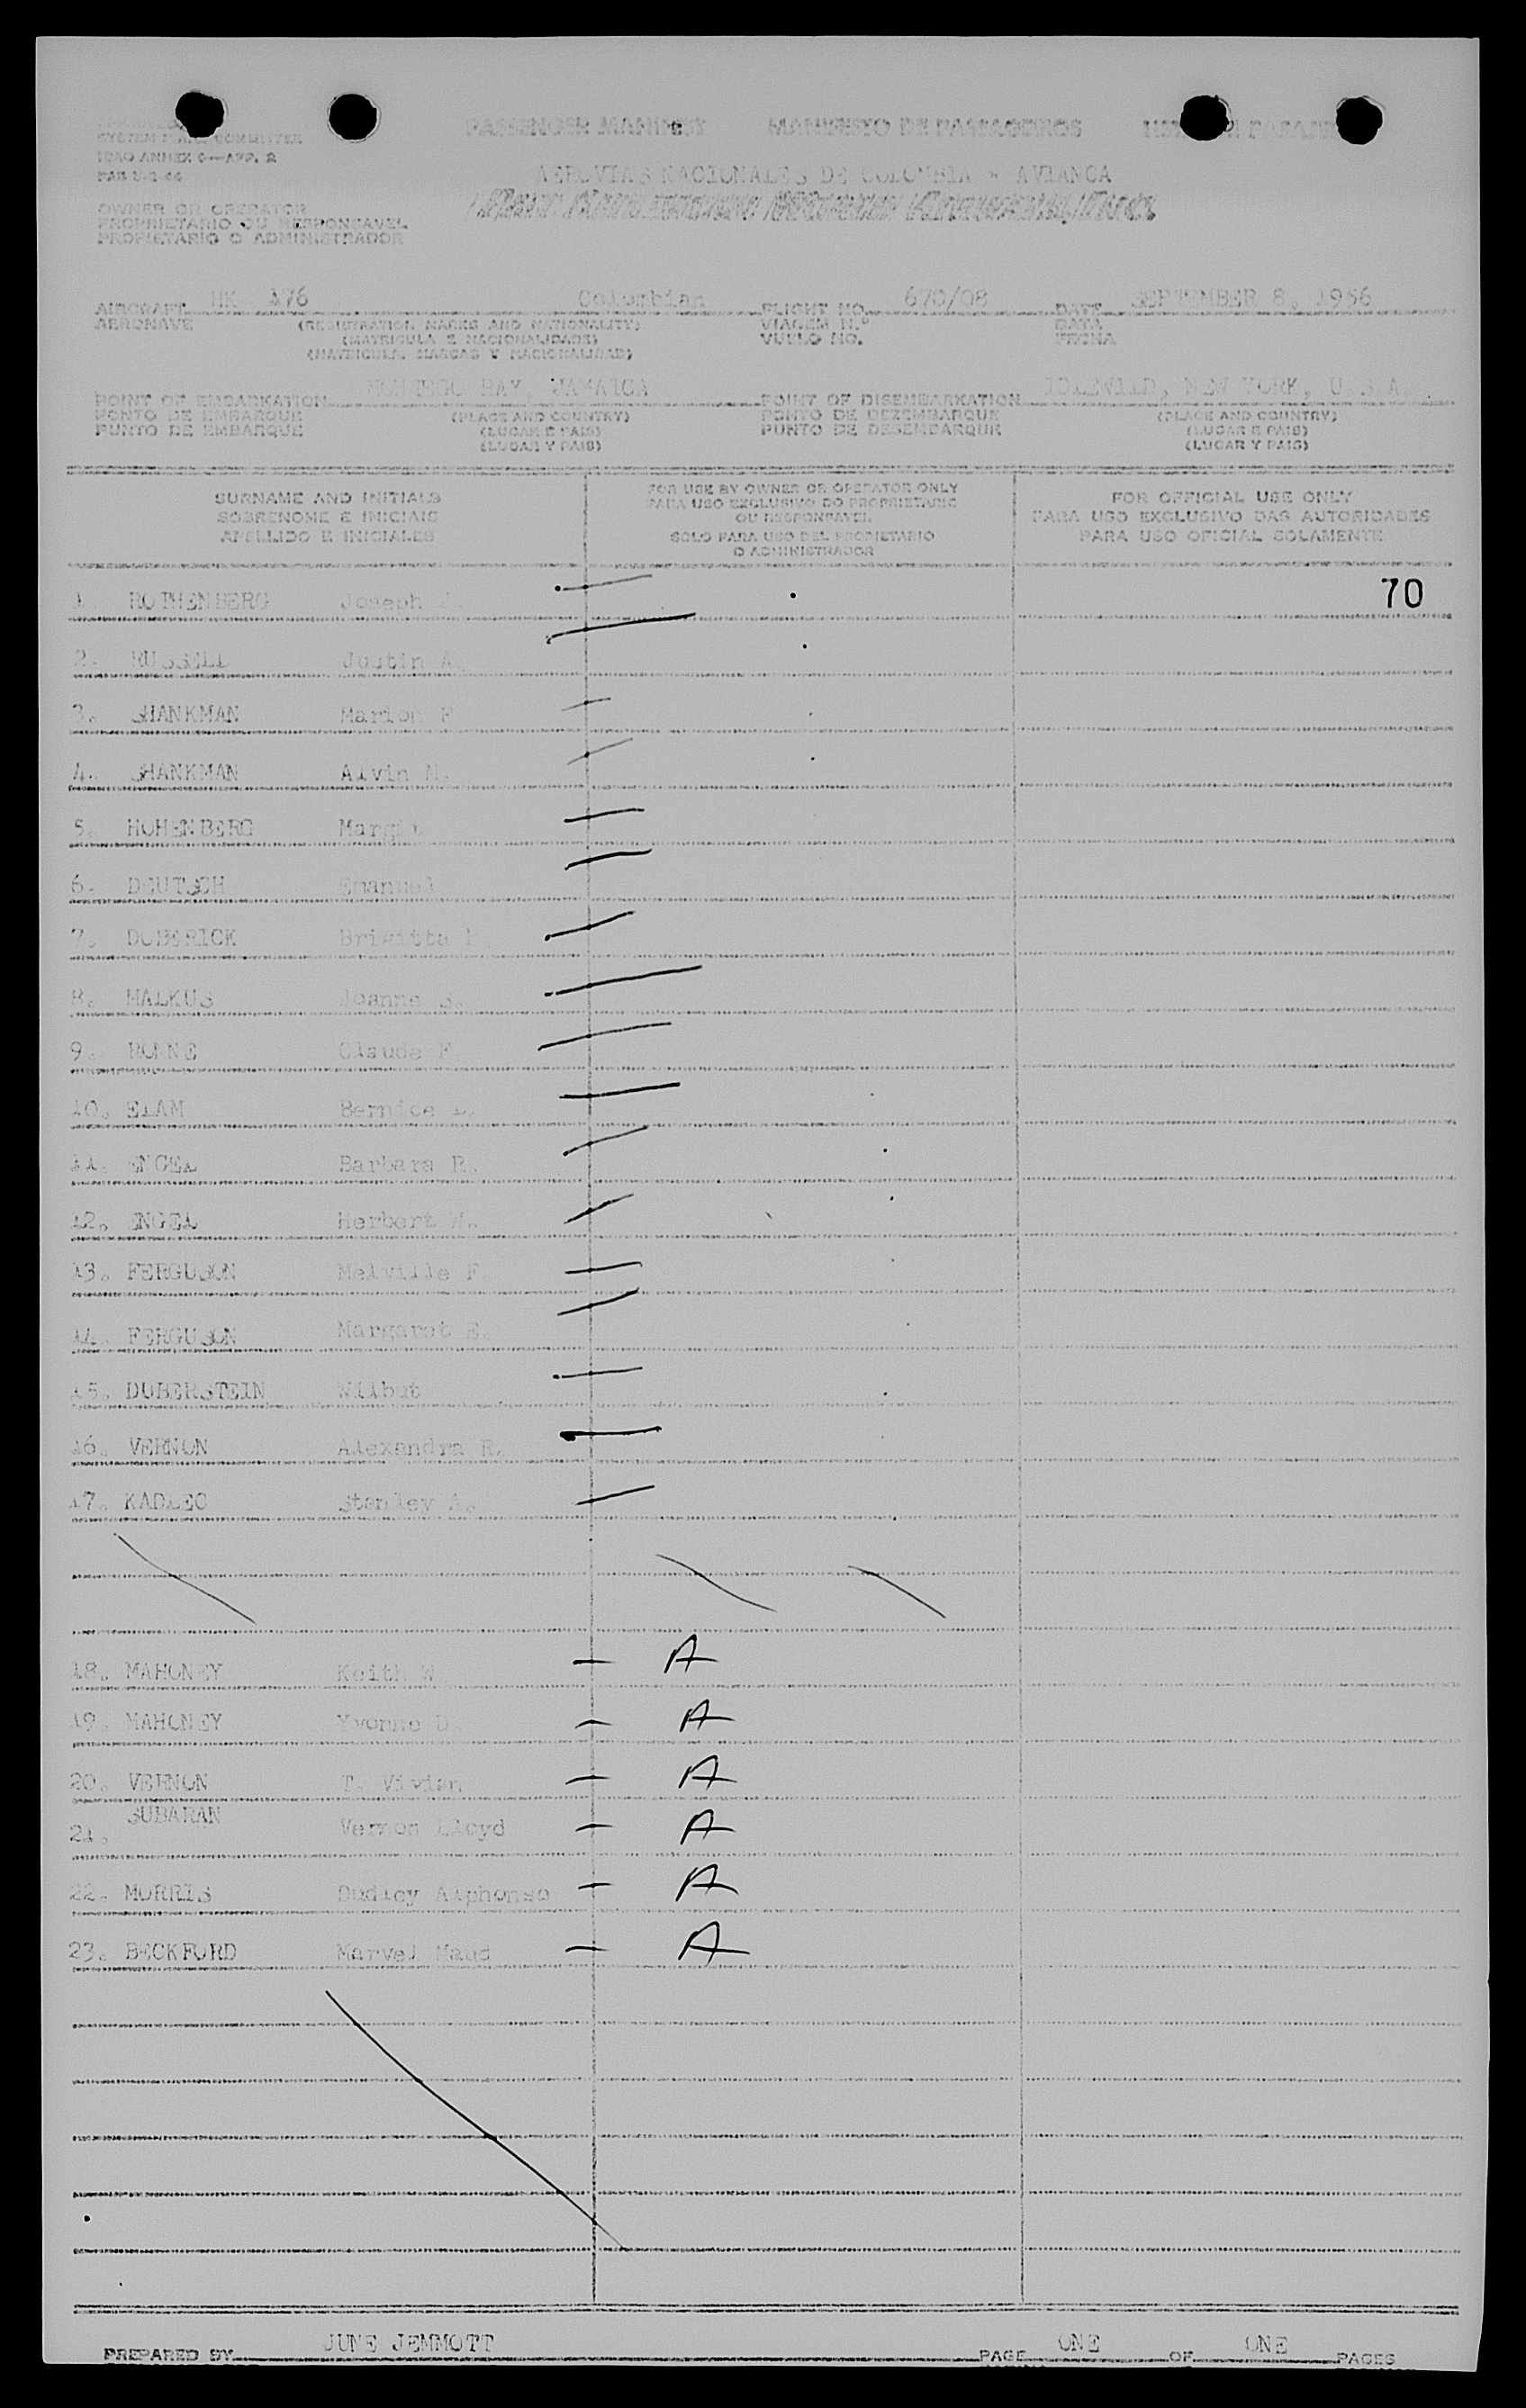 SYSTEM FORMS COMMITTEE
ICAO ANNEX 9—APP. 2
PAN 2-1-46
PASSENGER MANIFEST MANIFESTO DE PASSAGEIROS
AEROVIAS NACIONALES DE COLOMBIA - AVIANCA
OWNER OR OPERATOR
PROPRIETARIO OU RESPONSAVEL
PROPIETARIO O ADMINISTRADOR
AIRCRAFT HK 176 Columbian FLIGHT NO. 670/08 DATE SEPTEMBER 8, 1956
AERONAVE (REGISTRATION MARKS AND NATIONALITY) VIAGEM N.º DATA
(MATRICULA E NACIONALIDADE) VUELO NO. FECHA
(MATRICULA, MARCAS Y NACIONALIDAD)
POINT OF EMBARKATION MONTEGO BAY, JAMAICA POINT OF DISEMBARKATION IDLEWILD, NEW YORK, U.S.A.
PONTO DE EMBARQUE (PLACE AND COUNTRY) PONTO DE DEZEMBARQUE (PLACE AND COUNTRY)
PUNTO DE EMBARQUE (LUGAR E PAIS) PUNTO DE DESEMBARQUE (LUGAR E PAIS)
(LUGAR Y PAIS) (LUGAR Y PAIS)
SURNAME AND INITIALS
SOBRENOME E INICIAIS
APELLIDO E INICIALES
FOR USE BY OWNER OR OPERATOR ONLY
PARA USO EXCLUSIVO DO PROPRIETARIO
OU RESPONSAVEL
SOLO PARA USO DEL PROPIETARIO
O ADMINISTRADOR
FOR OFFICIAL USE ONLY
PARA USO EXCLUSIVO DAS AUTORIDADES
PARA USO OFICIAL SOLAMENTE
1. ROTHENBERG Joseph J. 70
2. RUSSELL Joutin A.
3. SHANKMAN Marion F
4. SHANKMAN Alvin M.
5. HOHENBERG Margit
6. DEUTSCH Emanuel
7. DOBERICK Brigitta
8. MALKUS Joanne S.
9. RONNE Claude F
10. ELAM Bernice L.
11. ENGEL Barbara R.
12. ENGEL Herbert W.
13. FERGUSON Melville F
14. FERGUSON Margaret E.
15. DUBERSTEIN Wilbut
16. VERNON Alexandra R.
17. KADLEC Stanley A.
18. MAHONEY Keith W A
19. MAHONEY Yvonne D. A
20. VERNON T. Vivian A
21. SUBARAN Vernon Lloyd A
22. MORRIS Dudley Alphonso A
23. BECKFORD Marvel Maud A
PREPARED BY JUNE JEMMOTT PAGE ONE OF ONE PAGES